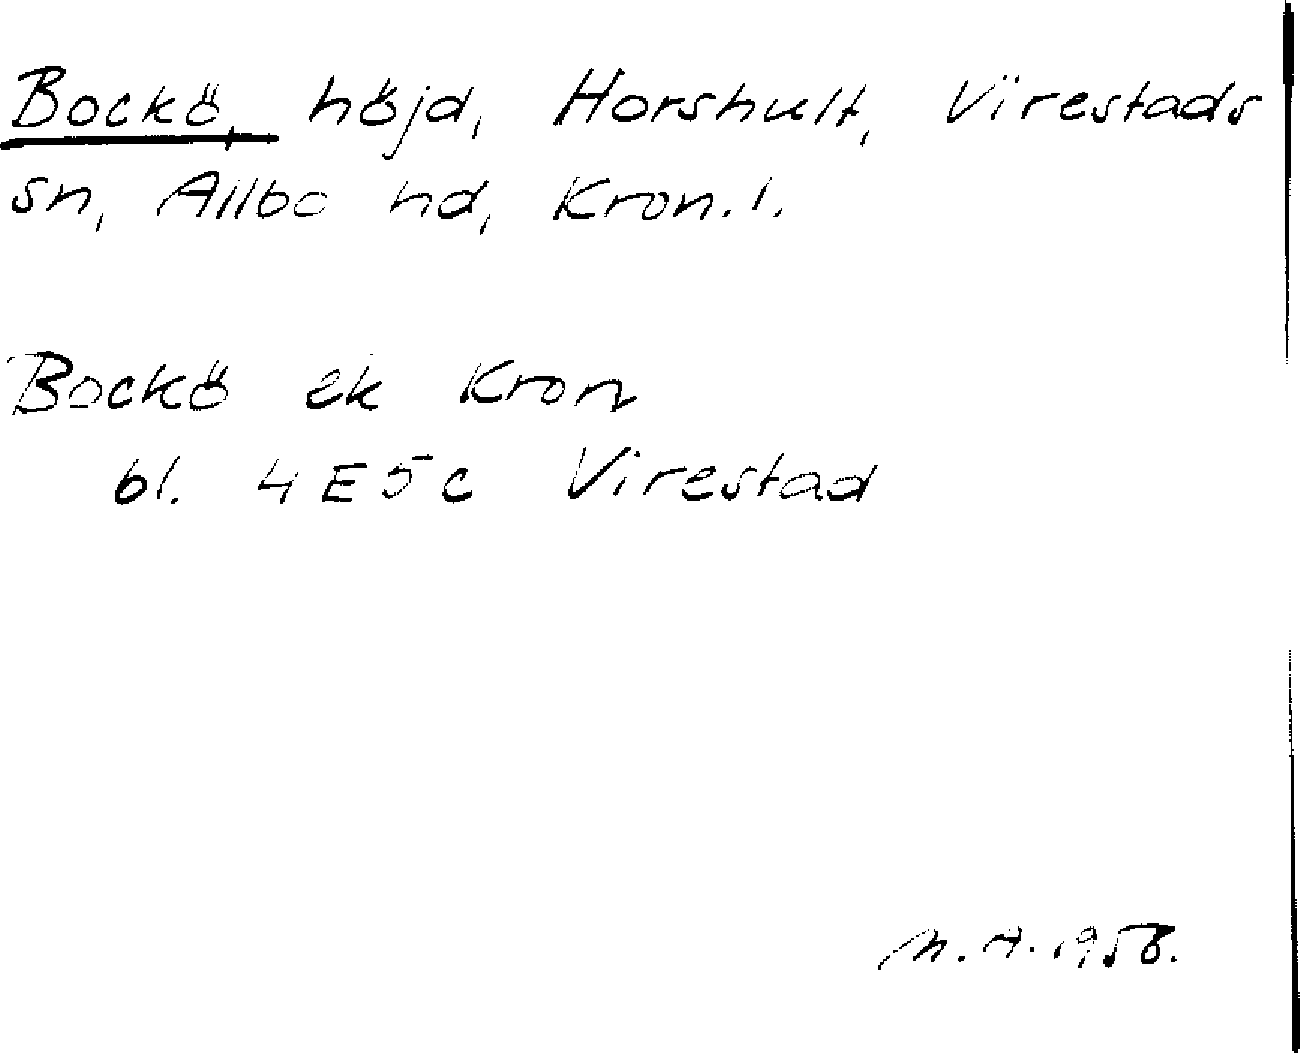 Bockö, höjd, Horshult, Virestads
sn, Allbo hd, Kron. l.
Bockö ek Kron
bl. 4E5c Virestad
M. A. 1958.